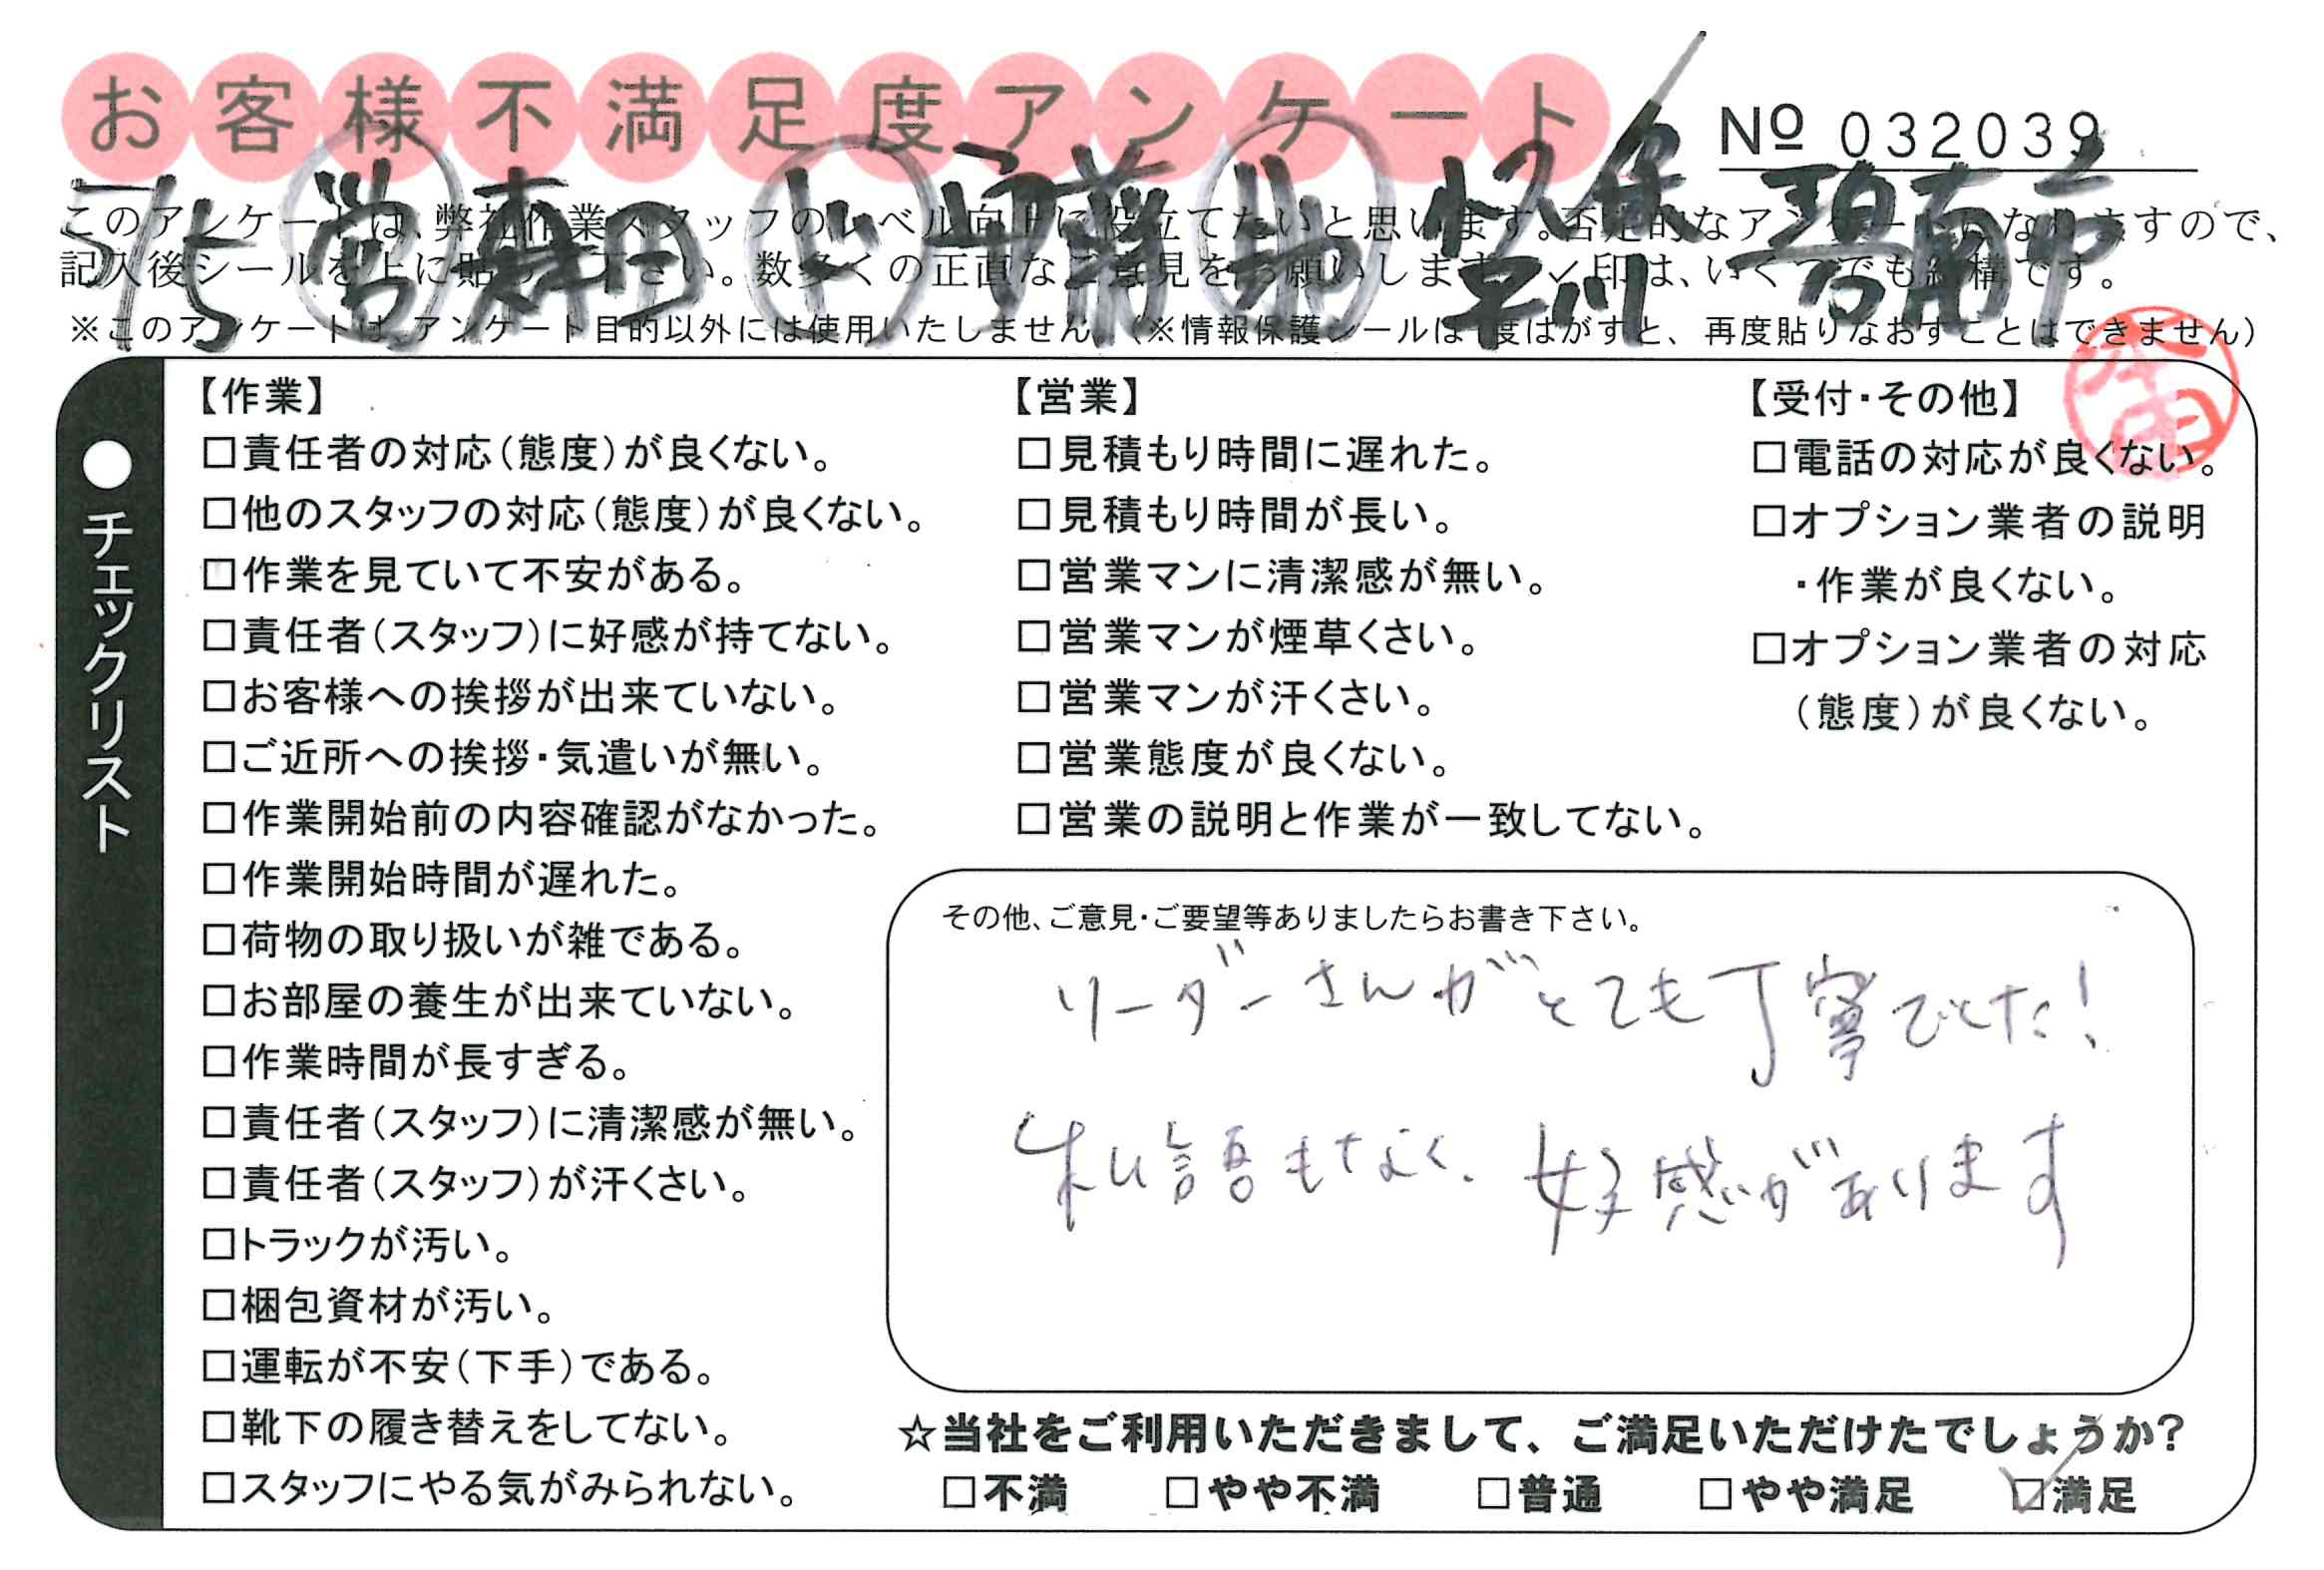 お客様不満足度アンケート
Nº 032039
5/5 営 ド 地 早川 碧南市
このアンケートは、弊社作業スタッフのレベル向上に役立てたいと思います。否定的なアンケートになりますので、
記入後シールを上に貼って下さい。数多くの正直なご意見をお願いします。✓印は、いくつでも結構です。
※このアンケートは、アンケート目的以外には使用いたしません。(※情報保護シールは1度はがすと、再度貼りなおすことはできません)
●チェックリスト
【作業】
□責任者の対応(態度)が良くない。
□他のスタッフの対応(態度)が良くない。
□作業を見ていて不安がある。
□責任者(スタッフ)に好感が持てない。
□お客様への挨拶が出来ていない。
□ご近所への挨拶・気遣いが無い。
□作業開始前の内容確認がなかった。
□作業開始時間が遅れた。
□荷物の取り扱いが雑である。
□お部屋の養生が出来ていない。
□作業時間が長すぎる。
□責任者(スタッフ)に清潔感が無い。
□責任者(スタッフ)が汗くさい。
□トラックが汚い。
□梱包資材が汚い。
□運転が不安(下手)である。
□靴下の履き替えをしてない。
□スタッフにやる気がみられない。
【営業】
□見積もり時間に遅れた。
□見積もり時間が長い。
□営業マンに清潔感が無い。
□営業マンが煙草くさい。
□営業マンが汗くさい。
□営業態度が良くない。
□営業の説明と作業が一致してない。
【受付・その他】
□電話の対応が良くない。
□オプション業者の説明
・作業が良くない。
□オプション業者の対応
(態度)が良くない。
その他、ご意見・ご要望等ありましたらお書き下さい。
リーダーさんがとても丁寧でした!
私語もなく、好感があります
☆当社をご利用いただきまして、ご満足いただけたでしょうか?
□不満 □やや不満 □普通 □やや満足 ☑満足